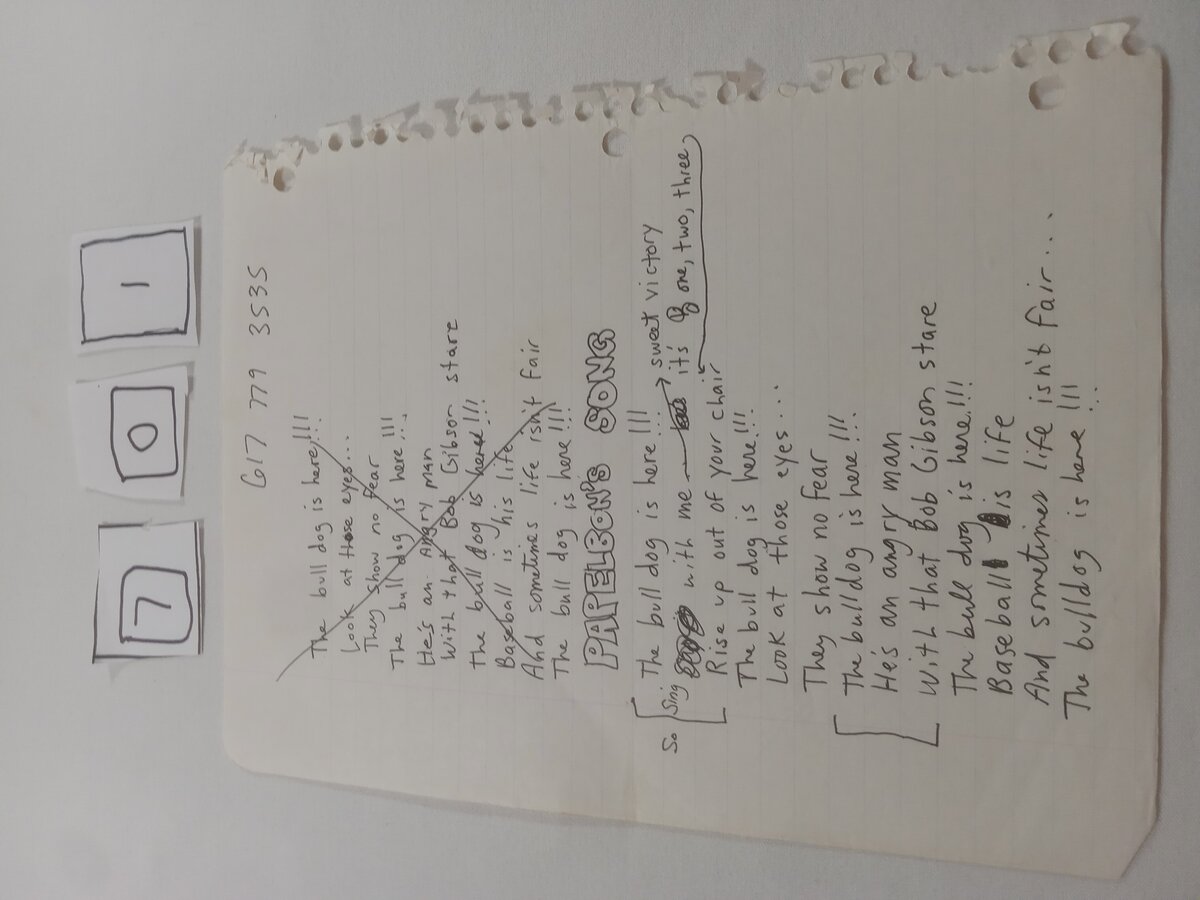 7 0 1
617 779 3535
The bull dog is here!!!
Look at those eyes...
They show no fear
The bull dog is here!!!
He's an Angry man
With that Bob Gibson stare
The bull dog is here!!!
Baseball is his life
And sometimes life isn't fair
The bull dog is here!!!
PAPELBON'S SONG
The bull dog is here!!!
So Sing with me sweet victory
it's one, two, three
Rise up out of your chair
The bull dog is here!!!
Look at those eyes...
They show no fear
The bulldog is here!!!
He's an angry man
With that Bob Gibson stare
The bull dog is here!!!
Baseball is life
And sometimes life isn't fair...
The bulldog is here!!!